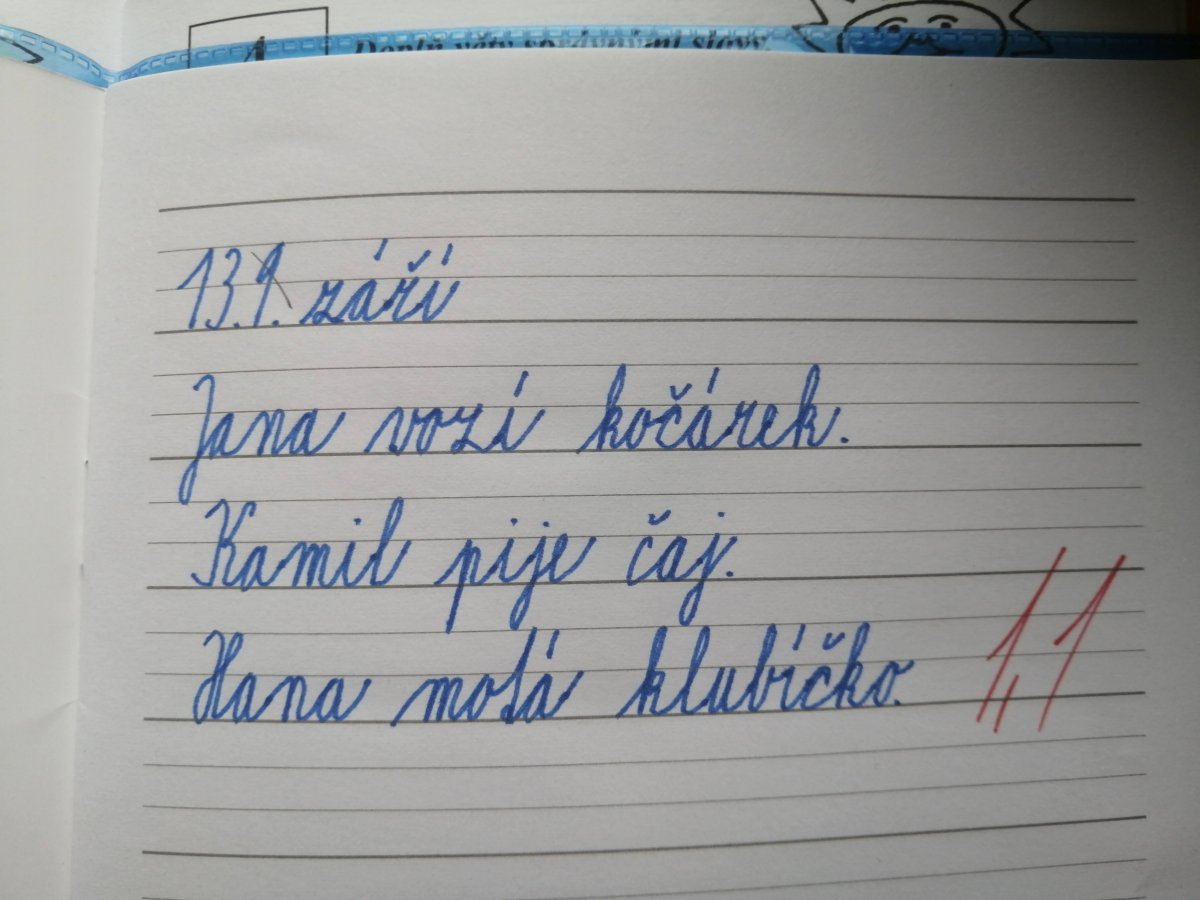 1 Doplň věty správnými slovy.
13.9. září
Jana vozí kočárek.
Kamil pije čaj.
Hana motá klubíčko.
1,1